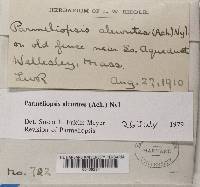 HERBARIUM OF L. W. RIDDLE.
Parmeliopsis aleurites (Ach.) Nyl.
on old fence near So. Aqueduct
Wellesley, Mass.
LWR Aug. 27, 1910
Parmeliopsis aleurites (Ach.) Nyl
Det. Susan L. Meyer
Revision of Parmeliopsis 1979
No. 722